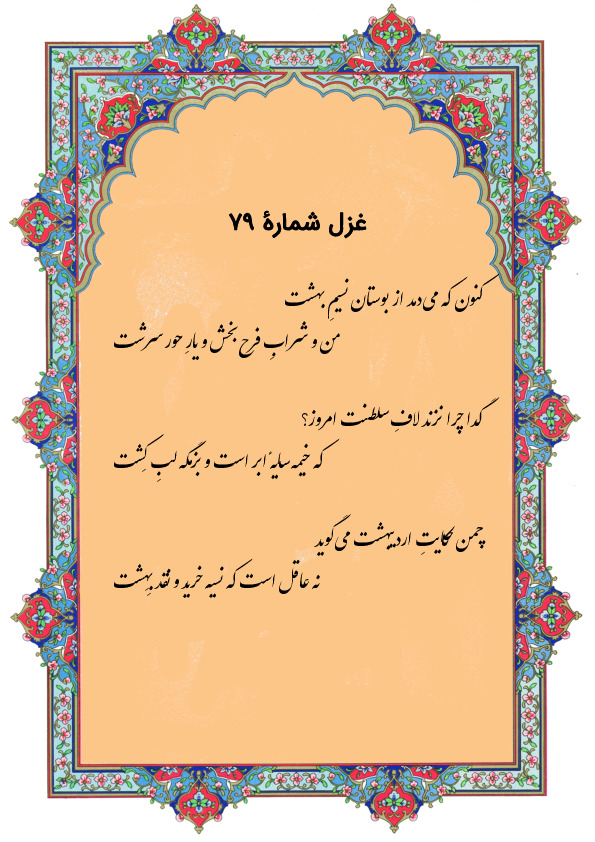 غزل شمارهٔ ۷۹
کنون که می‌دمد از بوستان نسیمِ بهشت
من و شرابِ فرح بخش و یارِ حور سرشت
گدا چرا نزند لافِ سلطنت امروز؟
که خیمه سایهٔ ابر است و بزمگه لبِ کِشت
چمن حکایتِ اردیبهشت می‌گوید
نه عاقل است که نسیه خرید و نقد بِهشت